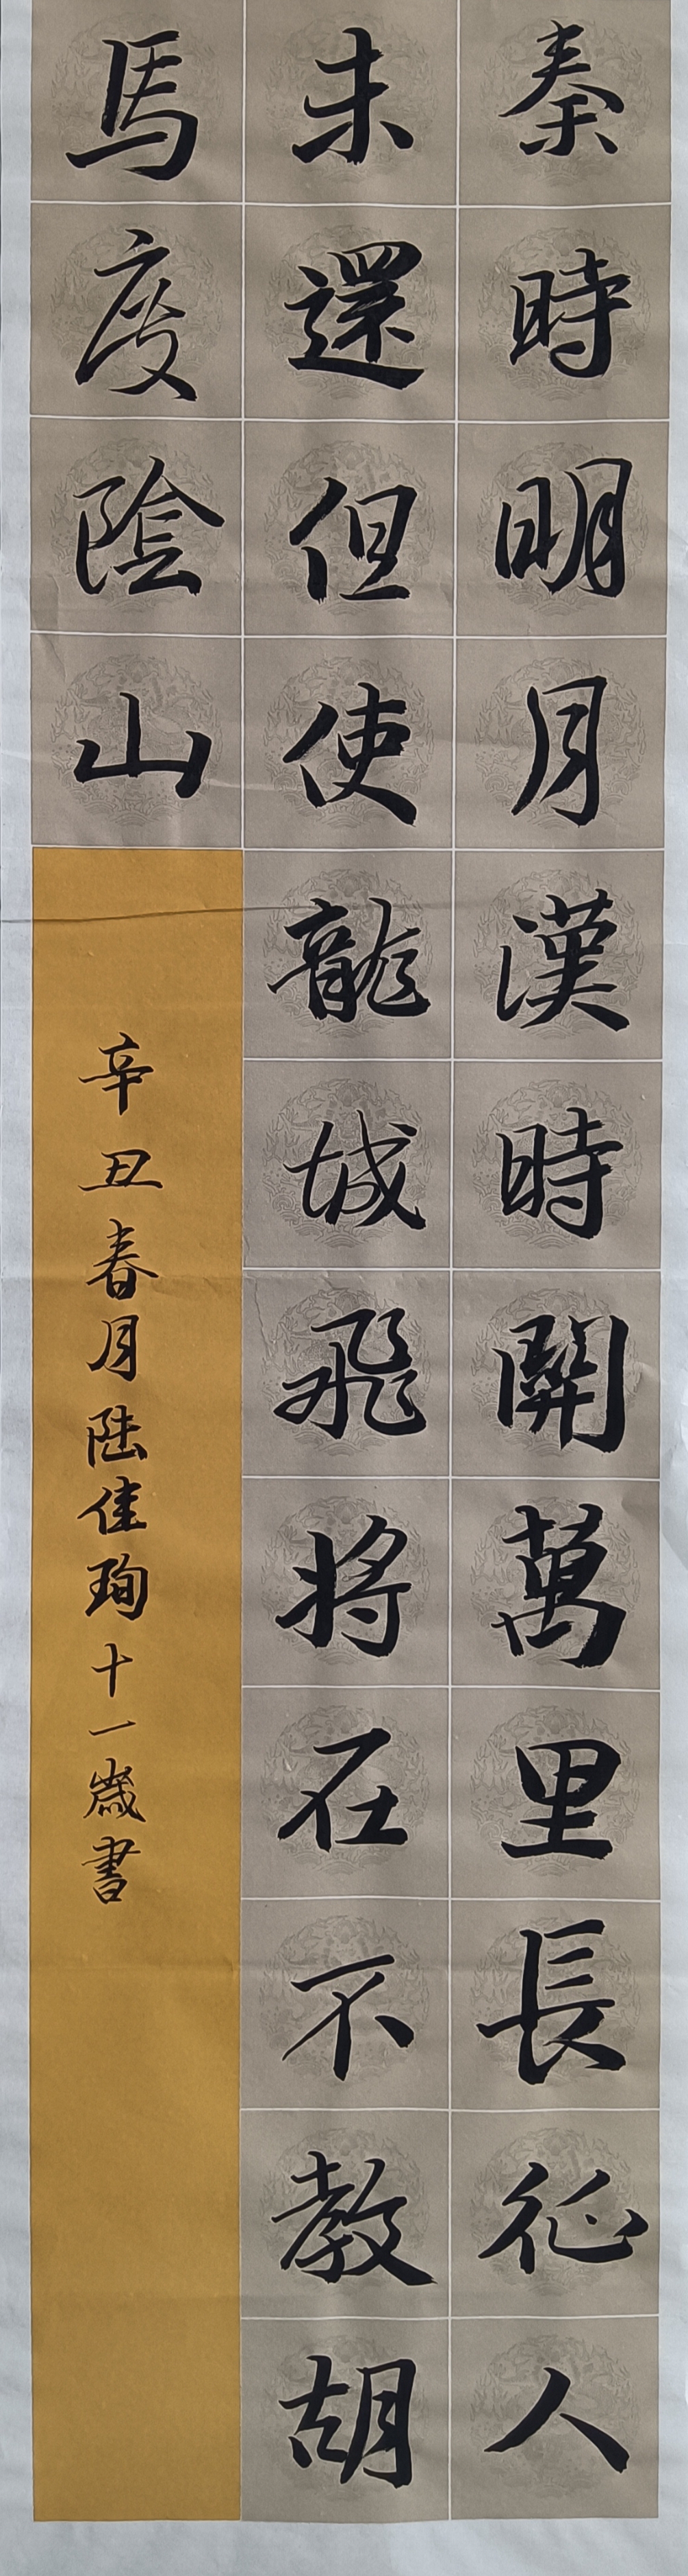 秦時明月漢時關萬里長征人
未還但使龍城飛將在不教胡
馬度陰山
辛丑春月陆佳珣十一歲書